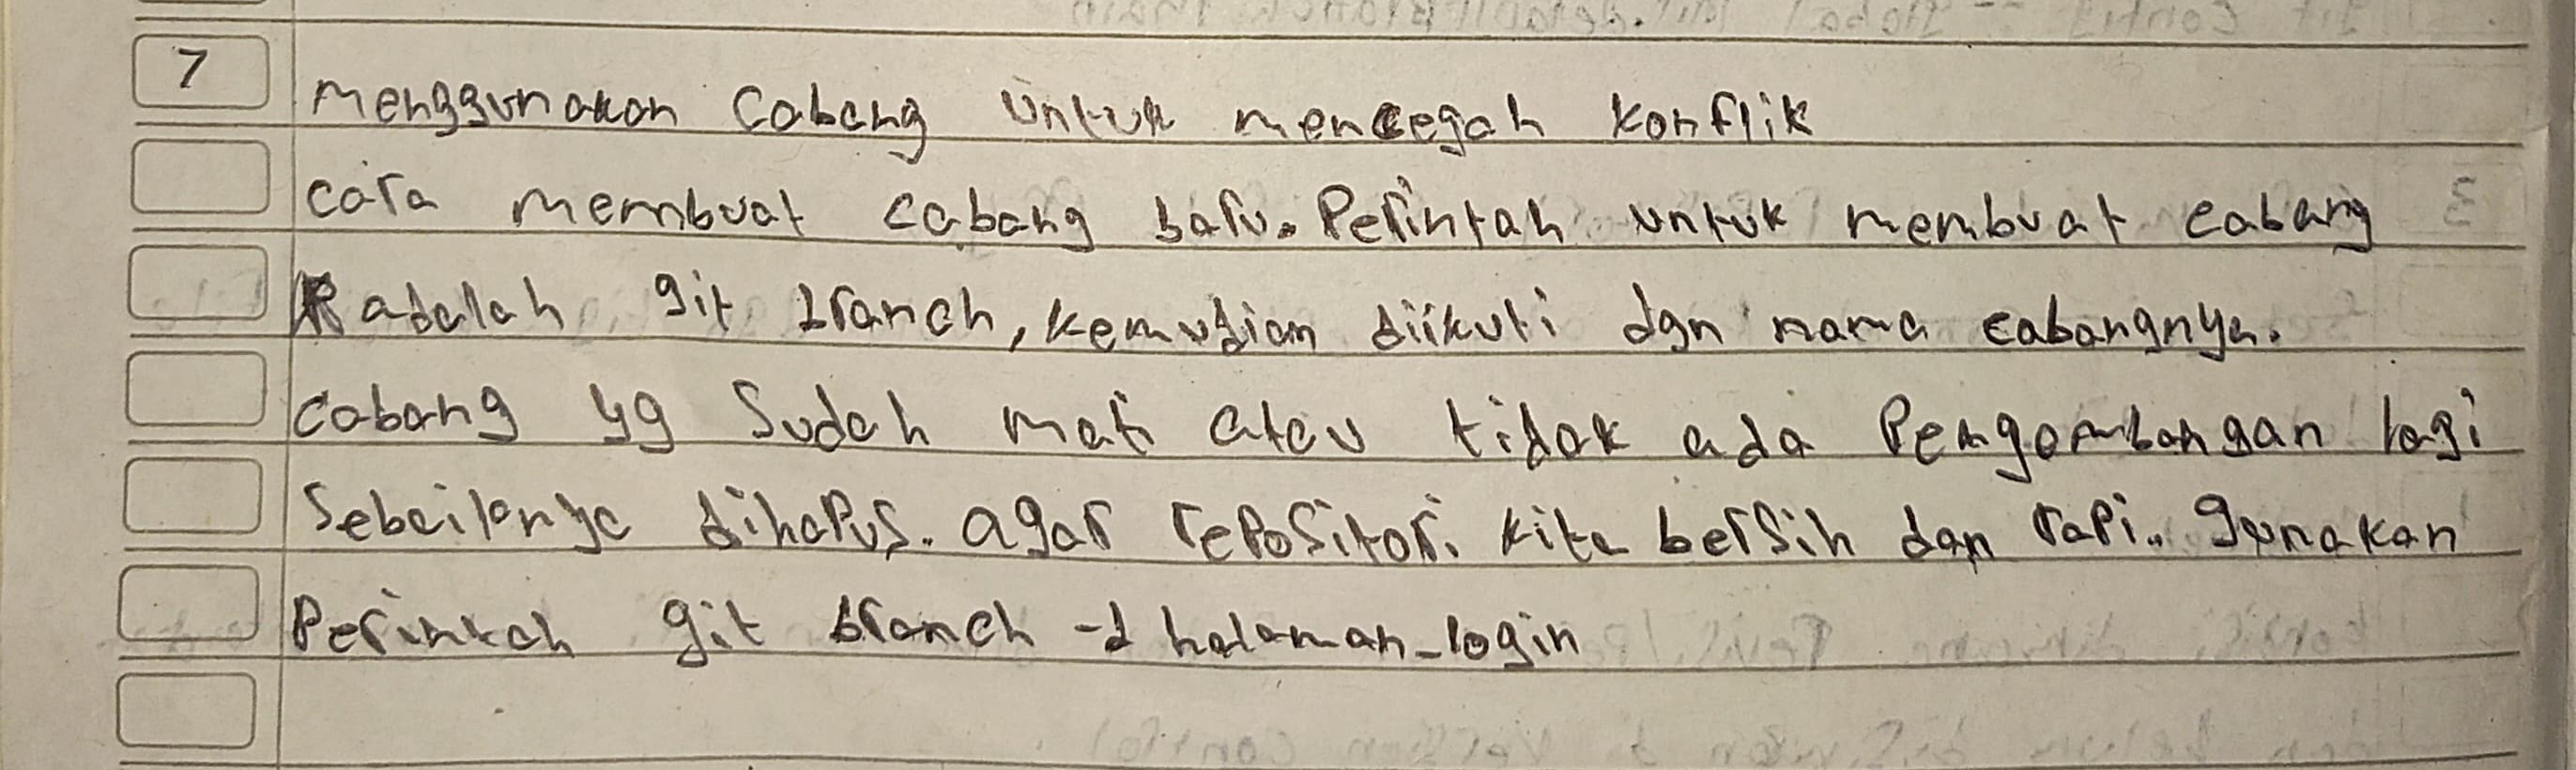 7 Menggunakan Cabang Untuk mencegah Konflik
cara membuat cabang baru. Perintah untuk membuat cabang
adalah git branch, kemudian diikuti dgn nama cabangnya.
cabang yg Sudah mati atau tidak ada Pengembangan lagi
Sebaiknya dihapus. agar repositori kita bersih dan rapi.. gunakan
Perintah git branch -d halaman_login